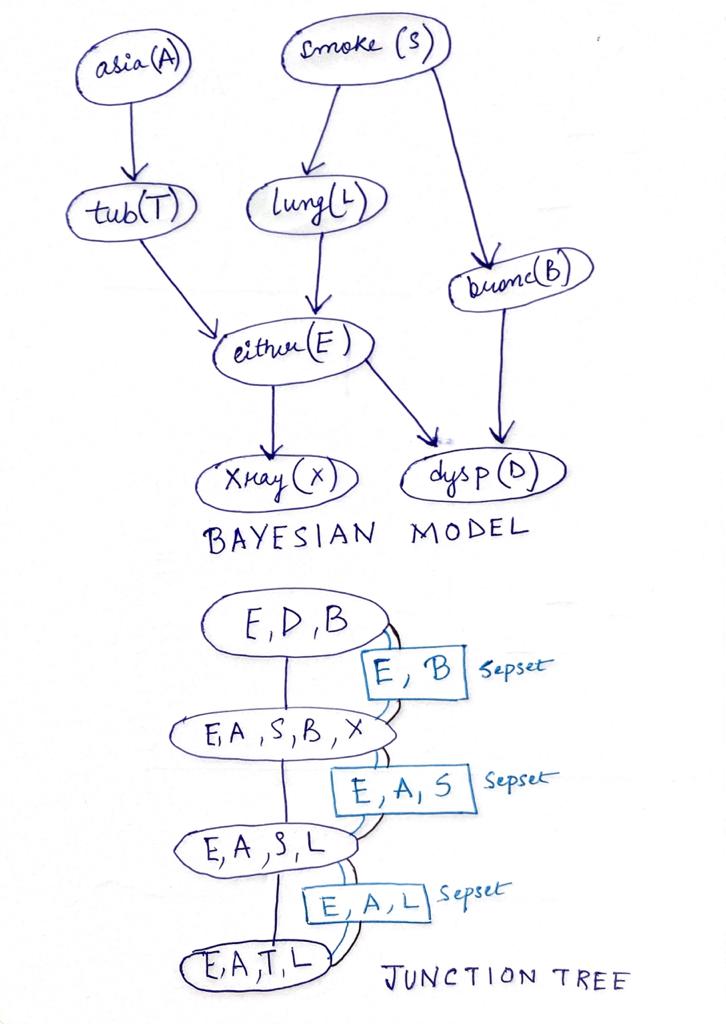 asia(A)
smoke (S)
tub(T)
lung(L)
bronc(B)
either(E)
Xray(X)
dysp(D)
BAYESIAN MODEL
E, D, B
E, B
Sepset
E, A, S, B, X
E, A, S
Sepset
E, A, S, L
E, A, L
Sepset
E, A, T, L
JUNCTION TREE